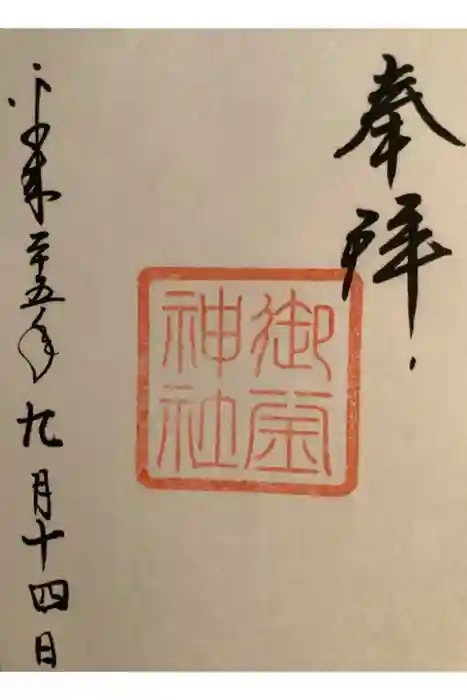 奉拝
御霊神社
平成二十五年九月十四日